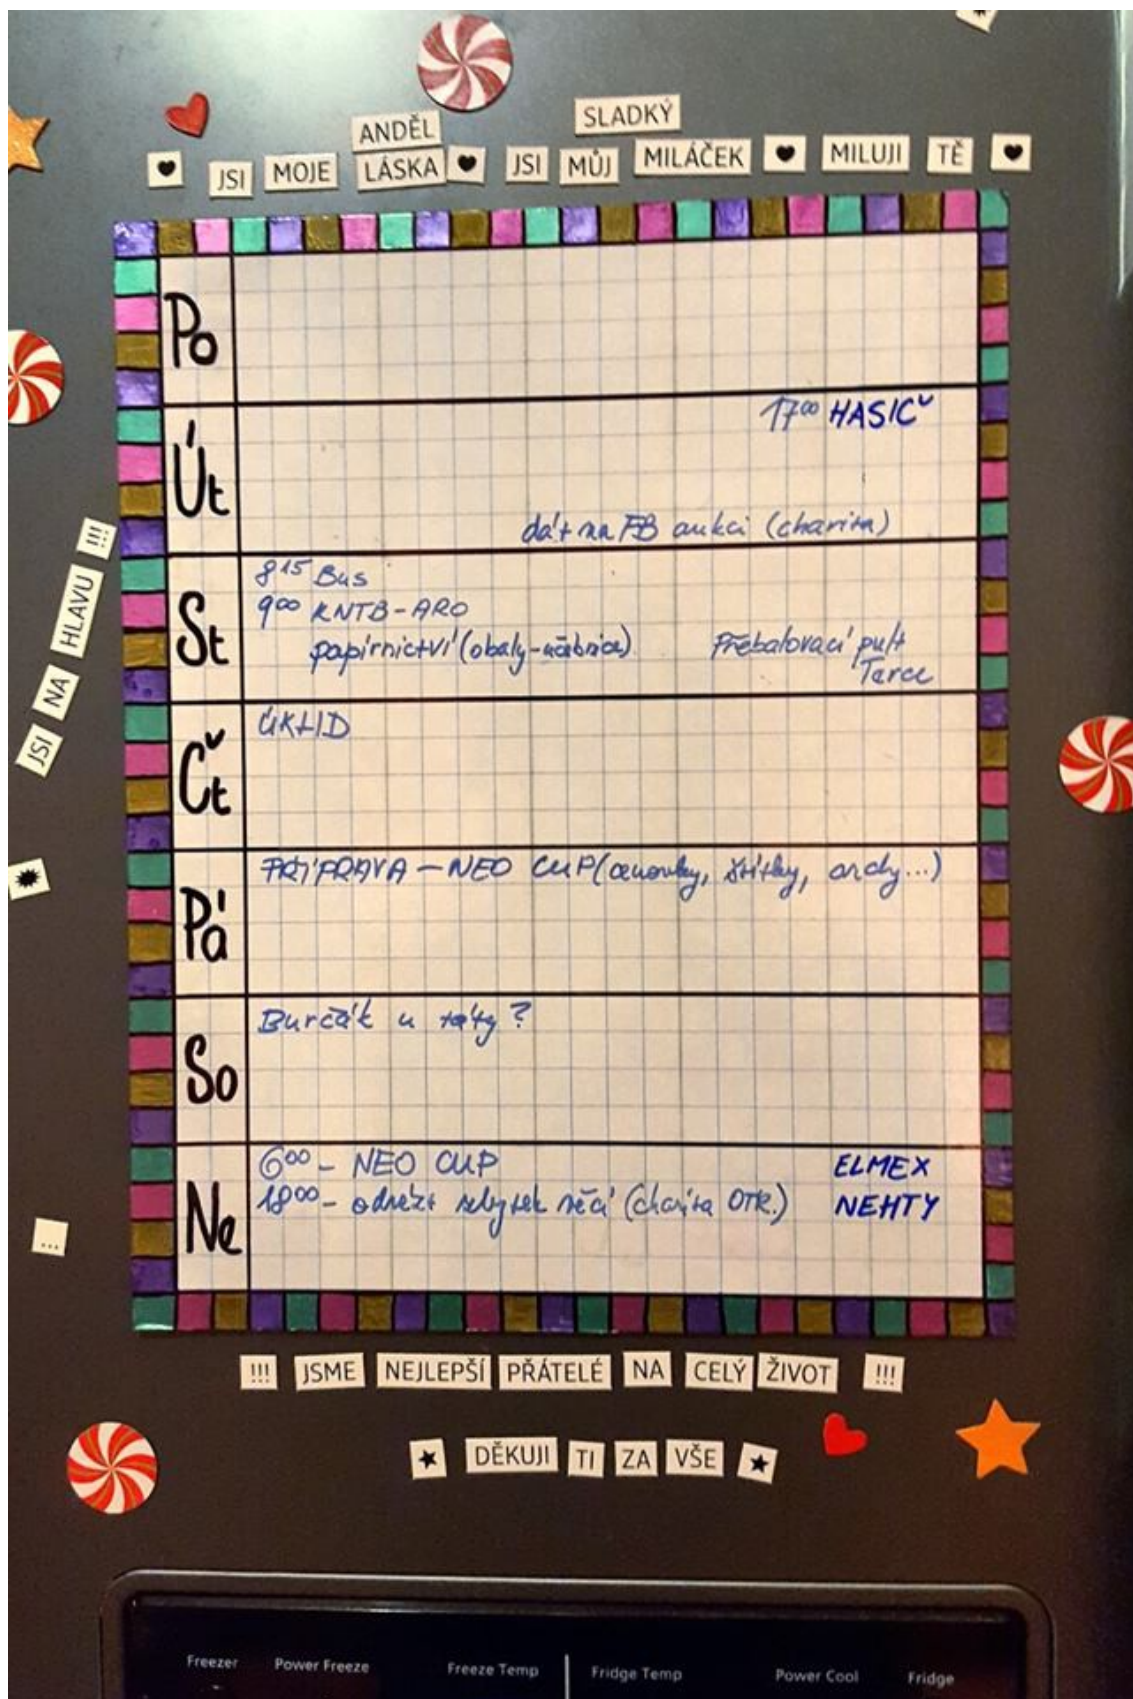 ANDĚL SLADKÝ
JSI MOJE LÁSKA JSI MŮJ MILÁČEK MILUJI TĚ
JSI NA HLAVU !!!
Po
Út
17⁰⁰ HASIČ
dát na FB aukci (charita)
St
8¹⁵ Bus
9⁰⁰ KNTB-ARO
papírnictví (obaly-učebnice) Přebalovací pult
Terce
Čt
ÚKLID
Pá
PŘÍPRAVA - NEO CUP (cenovky, štítky, ...)
So
Burčák u táty?
Ne
6⁰⁰ - NEO CUP ELMEX
18⁰⁰ - odvézt zbytek věcí (charita OTR.) NEHTY
...
!!! JSME NEJLEPŠÍ PŘÁTELÉ NA CELÝ ŽIVOT !!!
DĚKUJI TI ZA VŠE
Freezer Power Freeze Freeze Temp Fridge Temp Power Cool Fridge